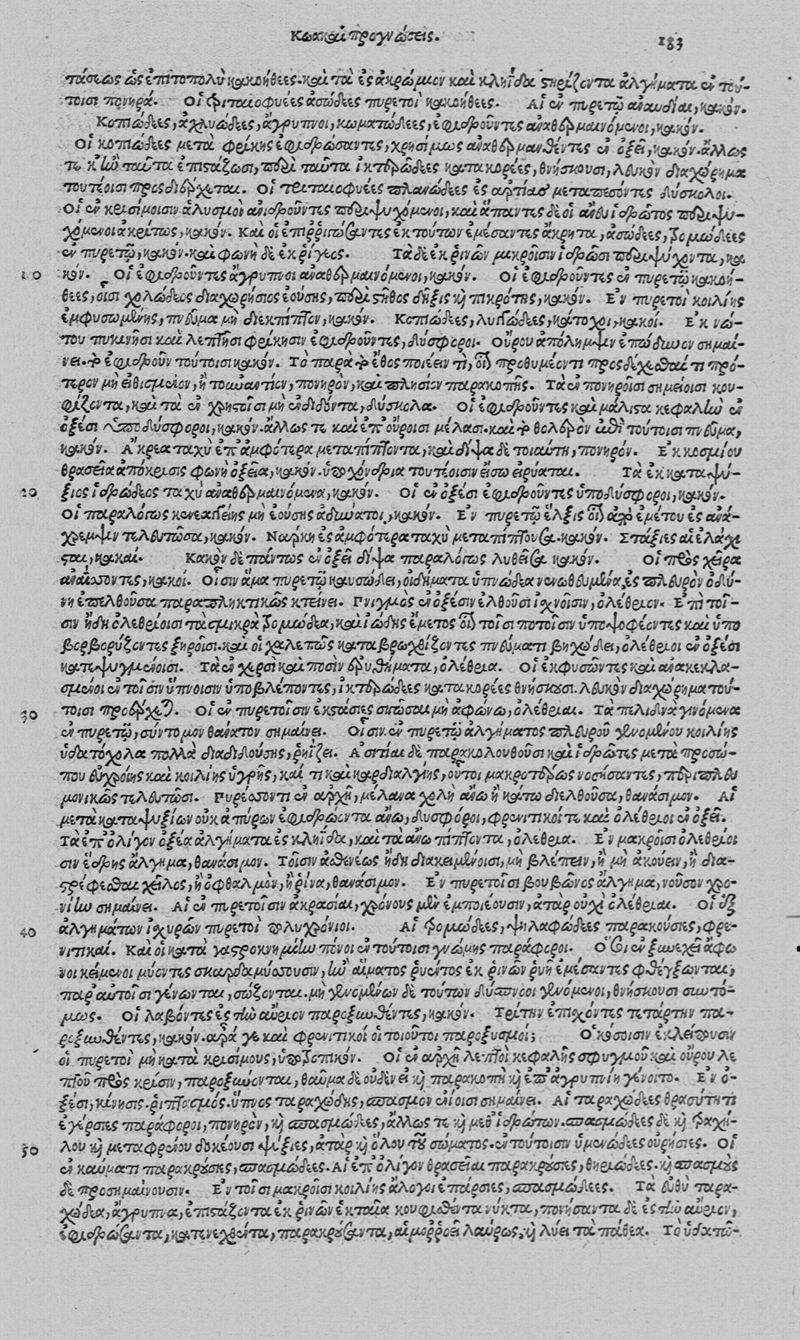 Κωακαὶ προγνώσεις. 183
τάσιως ὡς ἐπιτοπολὺ κακοήθεες. καὶ τὰ ἐς ἀκρώμιον καὶ κληῗδα στηρίζοντα ἀλγήματα ἐν τού-
τοισι πονηρά. Οἱ τριταιοφυέες ἀσώδεες πυρετοὶ κακοήθεες. Αἱ ἐν πυρετῷ ἀναυδίαι, κακόν.
Κοπιώδεες, ἀχλυώδεες, ἄγρυπνοι, κωματώδεες, ἐφιδροῦντες ἀναθερμαινόμενοι, κακόν.
Οἱ κοπιώδεες μετὰ φρίκης ἐφιδρώσαντες, κρησίμως ἀναθερμανθέντες ἐν ὀξεῖ, κακόν. ἄλλως
τε κἢν ταῦτα ἐπιστάξωσι, περὶ ταῦτα ἰκτερώδεες κατακορέες, θνήσκουσι, λευκὸν διαχώρημα
τουτέοισι προσδιέρχεται. Οἱ τριταιοφυέες πλανώδεες ἐς ἀρτίας μεταπεσόντες δύσκολοι.
Οἱ ἐν κρισίμοισιν ἀλυσμοὶ ἀνιδροῦντες περιψυχόμενοι, καὶ ἅπαντες δὲ οἱ ἄνευ ἱδρῶτος περιψυ-
χόμενοι ἀκρίτως, κακόν. Καὶ οἱ ἐπιρριγοῦντες ἐκ τούτων ἐμέσαντες ἄκρητα, ἀσώδεες, τρομώδεες
ἐν πυρετῷ, κακόν. καὶ φωνὴ δὲ ἐκ ῥίγεος. Τὰ δὲ ἐκ ῥινῶν μικροῖσιν ἱδρῶσι περιψύχοντα, κα
10 κόν. Οἱ ἐφιδροῦντες ἄγρυπνοι ἀναθερμαινόμενοι, κακόν. Οἱ ἐφιδροῦντες ἐν πυρετῷ κακοή-
θεες, οἷσι χολώδεος διαχωρήσιος ἐούσης, περὶ στῆθος δῆξις ἢ πικρότης, κακόν. Ἐν πυρετοῖσι κοιλίης
ἐμφυσωμένης, πνεῦμα μὴ διεκπίπτον, κακόν. Κοπιώδεες, λυγγώδεες, κάτοχοι, κακοί. Ἐκ νώ-
του πυκινῇσι καὶ λεπτῇσι φρίκῃσιν ἐφιδροῦντες, δύσφοροι. Οὔρου ἀπόλημψιν ἐπώδυνον σημαί-
νει. τὸ ἐφιδροῦν τούτοισι κακόν. Τὸ παρὰ τὸ ἔθος ποιέειν τὶ, οἷον προθυμέοντι προσδέχεσθαί τι πρό-
τερον μὴ εἰθισμένον, ἢ τοὐναντίον, πονηρὸν, καὶ πλησίον παρακοπῆς. Τὰ ἐν πονηροῖσι σημείοισι κου-
φίζοντα, καὶ τὰ ἐν χρηστοῖσι μὴ ἐνδιδόντα, δύσκολα. Οἱ ἐφιδροῦντες καὶ μάλιστα κεφαλὴν ἐν
ὀξέσι ὑποδύσφοροι, κακόν. ἄλλως τε καὶ ἐπ' οὔροισι μέλασι. καὶ τὸ θολερὸν ἐπὶ τούτοισι πνεῦμα,
κακόν. Ἄκρεα ταχὺ ἐπ' ἀμφότερα μεταπίπτοντα, καὶ δίψα δὲ τοιαύτη, πονηρόν. Ἐκ κοσμίου
θρασεῖα ἀπόκρισις φωνὴ ὀξεῖα, κακόν. ὑποχόνδρια τουτέοισιν εἴσω εἰρύαται. Τὰ ἐκ καταψύ-
20 ξιος ἱδρώδεος ταχὺ ἀναθερμαινόμενα, κακόν. Οἱ ἐν ὀξέσι ἐφιδροῦντες ὑποδύσφοροι, κακόν.
Οἱ παραλόγως κενεαγγείης μὴ ἐούσης ἀδύνατοι, κακόν. Ἐν πυρετῷ ἕλξις οἷον ἀπὸ ἐμέτου ἐς ἀνά-
χρεμψιν τελευτῶσα, κακόν. Νάρκη ἐς ἀμφότερα ταχὺ μεταπίπτουσα, κακόν. Στάξιες αἱ ἐλάχι
σται, κακαί. Κακὸν δὲ πάντως ἐν ὀξεῖ δίψα παραλόγως λυθεῖσα κακόν. Οἱ πρὸς χεῖρα
ἀναΐσσοντες, κακοί. Οἷσιν ἅμα πυρετῷ καυσώδει, οἰδήματα ὑπνώδεα νενωθρευμένα, ἐς πλευρὸν ὀδύ-
νη ἐπελθοῦσα παραπληκτικῶς κτείνει. Πνιγμὸς ἐν ὀξέσιν ἐλθοῦσι ἰσχνοῖσιν, ὀλέθριον. Ἐπὶ τοῖ-
σιν ἤδη ὀλεθρίοισι τὰ σμικρὰ τρομώδεα, καὶ ἰώδης ἔμετος οἷον τοῖσι ποτοῖσιν ὑποψοφέοντες καὶ ὑπο
βορβορύζοντες ξηροῖσι. καὶ οἱ χαλεπῶς καταβροχθίζοντες πνεύματι βηχώδει, ὀλέθριοι ἐν ὀξέσι
κατεψυγμένοισι. Τὰ ἐν χερσὶ καὶ ποσὶν ἐρυθήματα, ὀλέθρια. Οἱ ἐκφυσῶντες καὶ ἀνακεκλα-
σμένοι ἐν τοῖσιν ὕπνοισιν ὑποβλέποντες, ἰκτερώδεες κατακορέες θνήσκουσι. λευκὸν διαχώρημα τού-
30 τοισι προέρχεται. Οἱ ἐν πυρετοῖσιν ἐκστάσιες σιγῶσαι μὴ ἀφώνῳ, ὀλέθριαι. Τὰ πελιδνὰ γινόμενα
ἐν πυρετῷ, σύντομον θάνατον σημαίνει. Οἷσιν ἐν πυρετῷ ἀλγήματος πλευροῦ γενομένου κοιλίης
ὑδατόχολα πολλὰ διαδιδούσης, ῥηΐζει. Ἀσιτίαι δὲ παρακολουθοῦσι καὶ ἱδρῶτες μετὰ προσώ-
που εὐχροίης καὶ κοιλίης ὑγρῆς, καί τι καὶ καρδιαλγίης, οὗτοι μακροτέρως νοσήσαντες, περιπλευ
μονικῶς τελευτῶσι. Πυρέσσοντι ἐν ἀρχῇ, μέλαινα χολὴ ἄνω ἢ κάτω διελθοῦσα, θανάσιμον. Αἱ
μετὰ καταψυξίων οὐκ ἀπύρων ἐφιδρῶντα ἄνω, δύσφοροι, φρενιτικοί τε καὶ ὀλέθριοι ἐν ὀξεῖ.
Τὰ ἐπ' ὀλίγον ὀξέα ἀλγήματα ἐς κληῗδα, καὶ τὰ ἄνω πίπτοντα, ὀλέθρια. Ἐν μακροῖσι ὀλεθρίοι
σιν ἕδρης ἄλγημα, θανάσιμον. Τοῖσιν ἀσθενέως ἤδη διακειμένοισι, μὴ βλέπειν, ἢ μὴ ἀκούειν, ἢ δια-
στρέφεσθαι χεῖλος, ἢ ὀφθαλμὸν, ἢ ῥῖνα, θανάσιμον. Ἐν πυρετοῖσι βουβῶνος ἄλγημα, νοῦσον χρο-
νίην σημαίνει. Αἱ ἐν πυρετοῖσιν ἀκρασίαι, χρόνους μὲν ἐμποιέουσιν, ἀτὰρ οὐχὶ ὀλέθριαι. Οἱ ἐξ
40 ἀλγημάτων ἰσχυρῶν πυρετοὶ πολυχρόνιοι. Αἱ τρομώδεες, ψηλαφώδεες παρακούσιες, φρε-
νιτικαί. Καὶ οἱ κατὰ γαστροκνημίην πόνοι ἐν τούτοισι γνώμης παράφοροι. Ὅσοι ἐν ξυνεχεῖ ἄφω
νοι κείμενοι μύοντες σκαρδαμύσσουσιν, ἢν αἵματος ῥυέντος ἐκ ῥινῶν ῥυῇ ἐμέσαντες φθέγξωνται,
παρ' αὐτοῖσι γένωνται, σώζονται. μὴ γενομένων δὲ τούτων δύσπνοοι γενόμενοι, θνήσκουσι συντό-
μως. Οἱ λαβόντες ἐς τὴν αὔριον παροξυνθέντες, κακόν. Τρίτην ἐπισχόντες τετάρτην πα-
ροξυνθέντες, κακόν. ἆρά γε καὶ φρενιτικοὶ οἱ τοιοῦτοι παροξυσμοί; Ὁκόσοισιν ἐκλείπουσιν
οἱ πυρετοὶ μὴ κατὰ κρισίμους, ὑποτροπικόν. Οἱ ἐν ἀρχῇ λεπτοὶ κεφαλῆς σφυγμοῦ καὶ οὔρου λε
πτοῦ πρὸς κρίσιν, παροξύνονται, θαῦμα δὲ οὐδὲν εἰ καὶ παρακοπὴ καὶ ἐπ' ἀγρυπνίῃ γένοιτο. Ἐν ὀ-
ξέσι, κίνησις. ῥιπτασμὸς. ὕπνος ταραχώδης, σπασμὸν ἐνίοισι σημαίνει. Αἱ ταραχώδεες θρασύτητι
ἐγέρσιες παράφοροι, πονηρὸν, καὶ σπασμώδεες, ἄλλως τε καὶ μεθ' ἱδρώτων. σπασμώδεες δὲ καὶ τραχή-
50 λου καὶ μεταφρένου δοκέουσι ψύξιες, ἀτὰρ καὶ ὅλου τοῦ σώματος. ἐν τούτοισιν ὑμενώδεες οὐρήσιες. Οἱ
ἐν καύματι παρακρούσιες, σπασμώδεες. Αἱ ἐπ' ὀλίγον θρασεῖαι παρακρούσιες, θηριώδεες. καὶ σπασμοὺς
δὲ προσημαίνουσιν. Ἐν τοῖσι μακροῖσι κοιλίης ἄλογοι ἐπάρσιες, σπασμώδεες. Τὰ εὐθὺ ταρα-
χώδεα, ἄγρυπνα, ἐπιστάζοντα ἐκ ῥινῶν ἑκταῖα κουφισθέντα νύκτα, πονήσαντα δὲ ἐς τὴν αὔριον,
ἐφιδρώσαντα, κατενεχθέντα, παρακρούσαντα, αἱμορροεῖ λαύρως, καὶ λύει τὰ πάθεα. Τὸ ὑδατῶ-